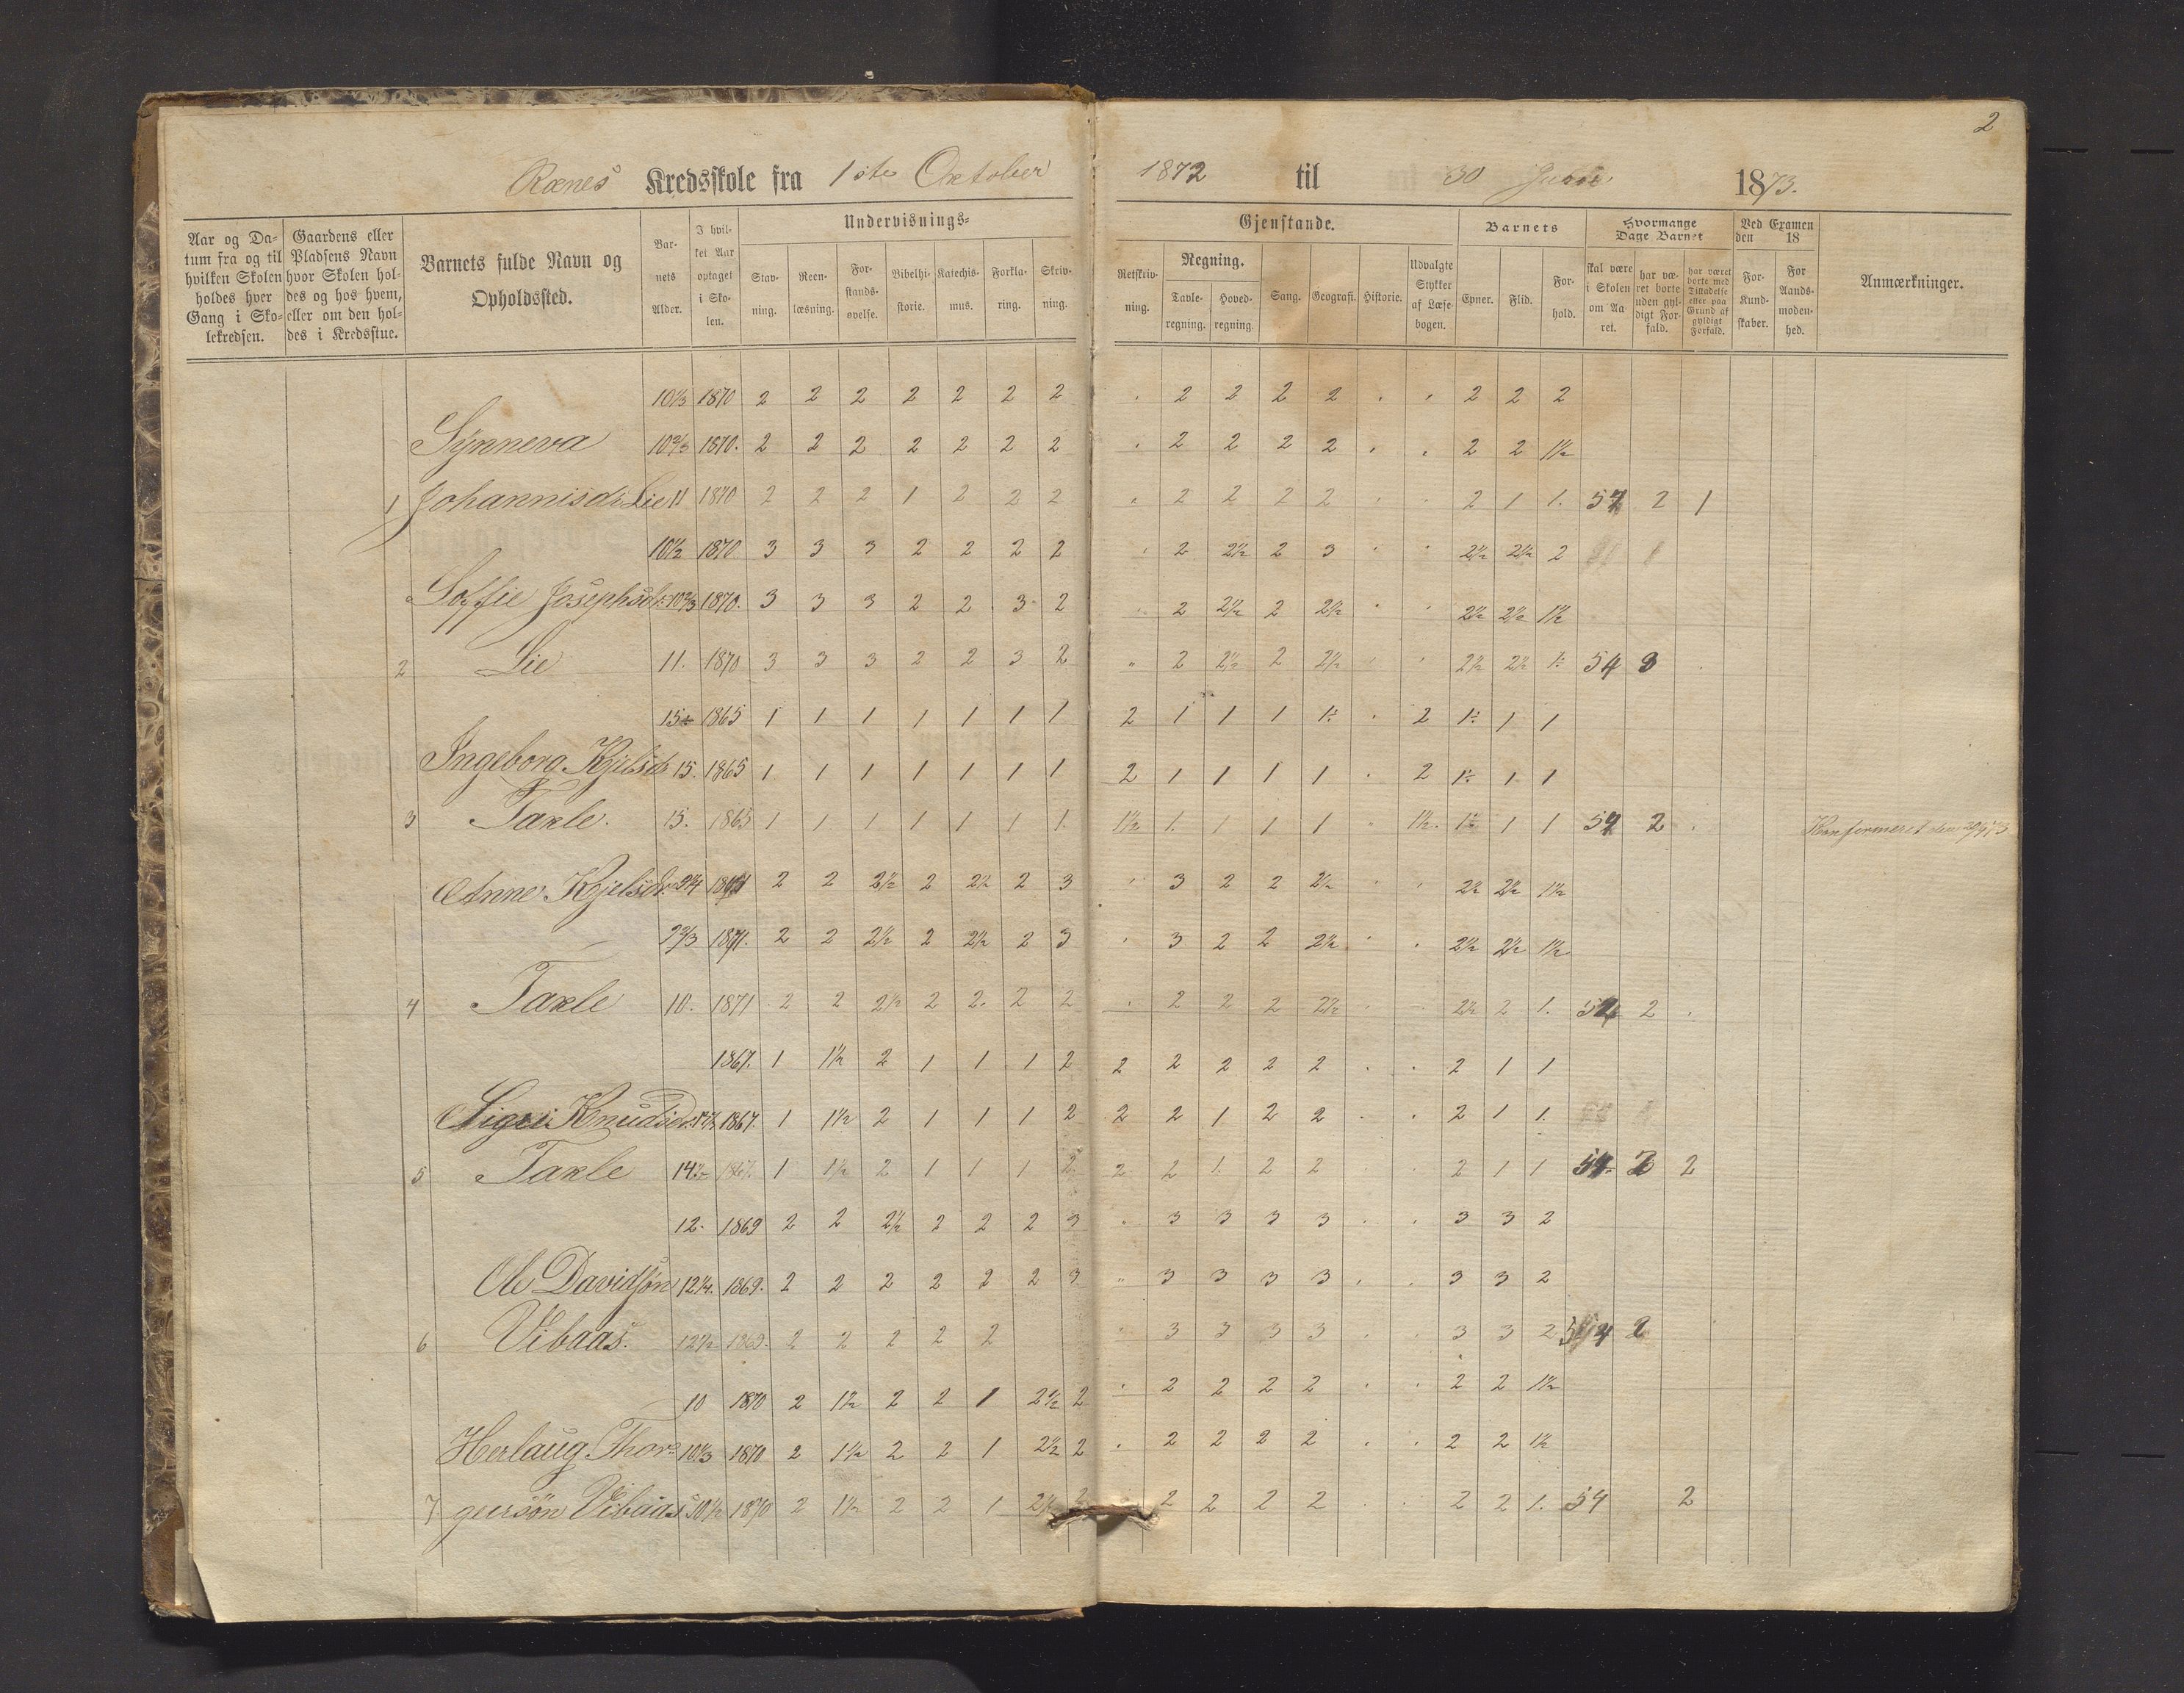 2
Rænes Kredsskole fra 1ste October 1872 til 30 Juni 1873.
Aar og Datum fra og til hvilken Skolen holdes hver Gang i Skolekredsen.
Gaardens eller Pladsens Navn hvor Skolen holdes og hos hvem, eller om den holdes i Kredsstue.
Barnets fulde Navn og Opholdssted.
Barnets Alder.
I hvilket Aar optaget i Skolen.
Undervisnings- Gjenstande.
Stavning. Reenlæsning. Forstandsøvelse. Bibelhistorie. Katechismus. Forklaring. Skrivning.
Retskrivning. Regning. Tavleregning. Hovedregning. Sang. Geografi. Historie. Udvalgte Stykker af Læsebogen.
Barnets Evner. Flid. Forhold.
Hvormange Dage Barnet
skal være i Skolen om Aaret. har været borte uden gyldigt Forfald. har været borte med Tilladelse eller paa Grund af gyldigt Forfald.
Ved Examen den 18
For Kundskaber. For Aandsmodenhed.
Anmærkninger.
10 1/3 1870 2 2 2 2 2 2 2 . 2 2 2 2 . . 2 2 2
Synneva 10 2/3 1870. 2 2 2 2 2 2 2 . 2 2 2 2 . . 2 2 1½
1 Johannisdr Lie 11 1870 2 2 2 1 2 2 2 " 2 2 2 2 . . 2 1 1. 54 2 1
10½ 1870 3 3 3 2 2 2 2 . 2 2½ 2 3 . . 2½ 2½ 2
Soffie Josephsdr. 10 2/3 1870. 3 3 3 2 2 3 2 . 2 2½ 2 2½ . . 2½ 2½ 1½
2 Lie 11. 1870 3 3 3 2 2 3 2 " 2 2½ 2 2½ . . 2½ 2½ 1÷ 54 3
15 1865 1 1 1 1 1 1 1 2 1 1 1 1÷ . 2 1÷ 1 1
Ingeborg Kjelsdr 15. 1865 1 1 1 1 1 1 1 2 1 1 1 1 . 2 1÷ 1 1
3 Takle. 15. 1865 1 1 1 1 1 1 1. 1½ 1. 1 1 1 . 1½. 1÷ 1 1 54 2 . Konfirmeret den
Anne Kjelsdr. 9¼ 1871 2 2 2½ 2 2½ 2 3 . 3 2 2 2½ . . 2½ 2½ 1½
9 2/3 1871. 2 2 2½ 2 2½ 2 3 . 3 2 2 2½ . . 2½ 2½ 1½
4 Takle 10. 1871 2 2 2½ 2 2. 2 2 . 2 2 2 2½ . . 2½ 2 1. 54 2 .
1867. 1 1½ 2 1 1 1 2 2 2 2 2 2 . . 2 1 1
Sigri Knudsdr. 1867. 1 1½ 2 1 1 1 2 2 2 1 2 2 . . 2 1 1.
5 Takle 14½ 1867. 1 1½ 2 1 1 1 2 2 2 1. 2 2 . . 2 1 1 54. 2 2
12. 1869 2 2 2½ 2 2 2 3 . 3 3 3 3 . . 3 3 2
Ole Davidsøn 12¼. 1869. 2 2 2 2 2 2 3 " 3 3 3 3 . . 3 3 2
6 Vibaas. 12½ 1869. 2 2 2 2 2 " 3 3 3 3 . . 3 3 2 54 2
10 1870 2 1½ 2 2 1 2½ 2 . 2 2 2 2 . . 2 2 1½
Herlaug Thor- 10 1/3 1870 2 1½ 2 2 1 2½ 2 . 2 2 2 2 . . 2 2 1½
7 geirsøn Vibaas 10½ 1870 2 1½ 2 2 1 2½ 2 2 2 2 2 . 2 2 1. 54 2